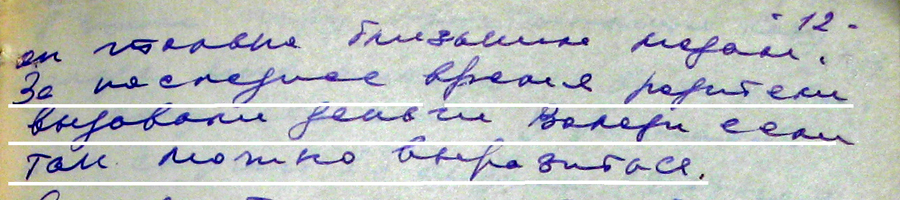 - 12 -
ет готовые близкими людям.
За последнее время родители
выдавали деньги Володи если
так можно выразиться.